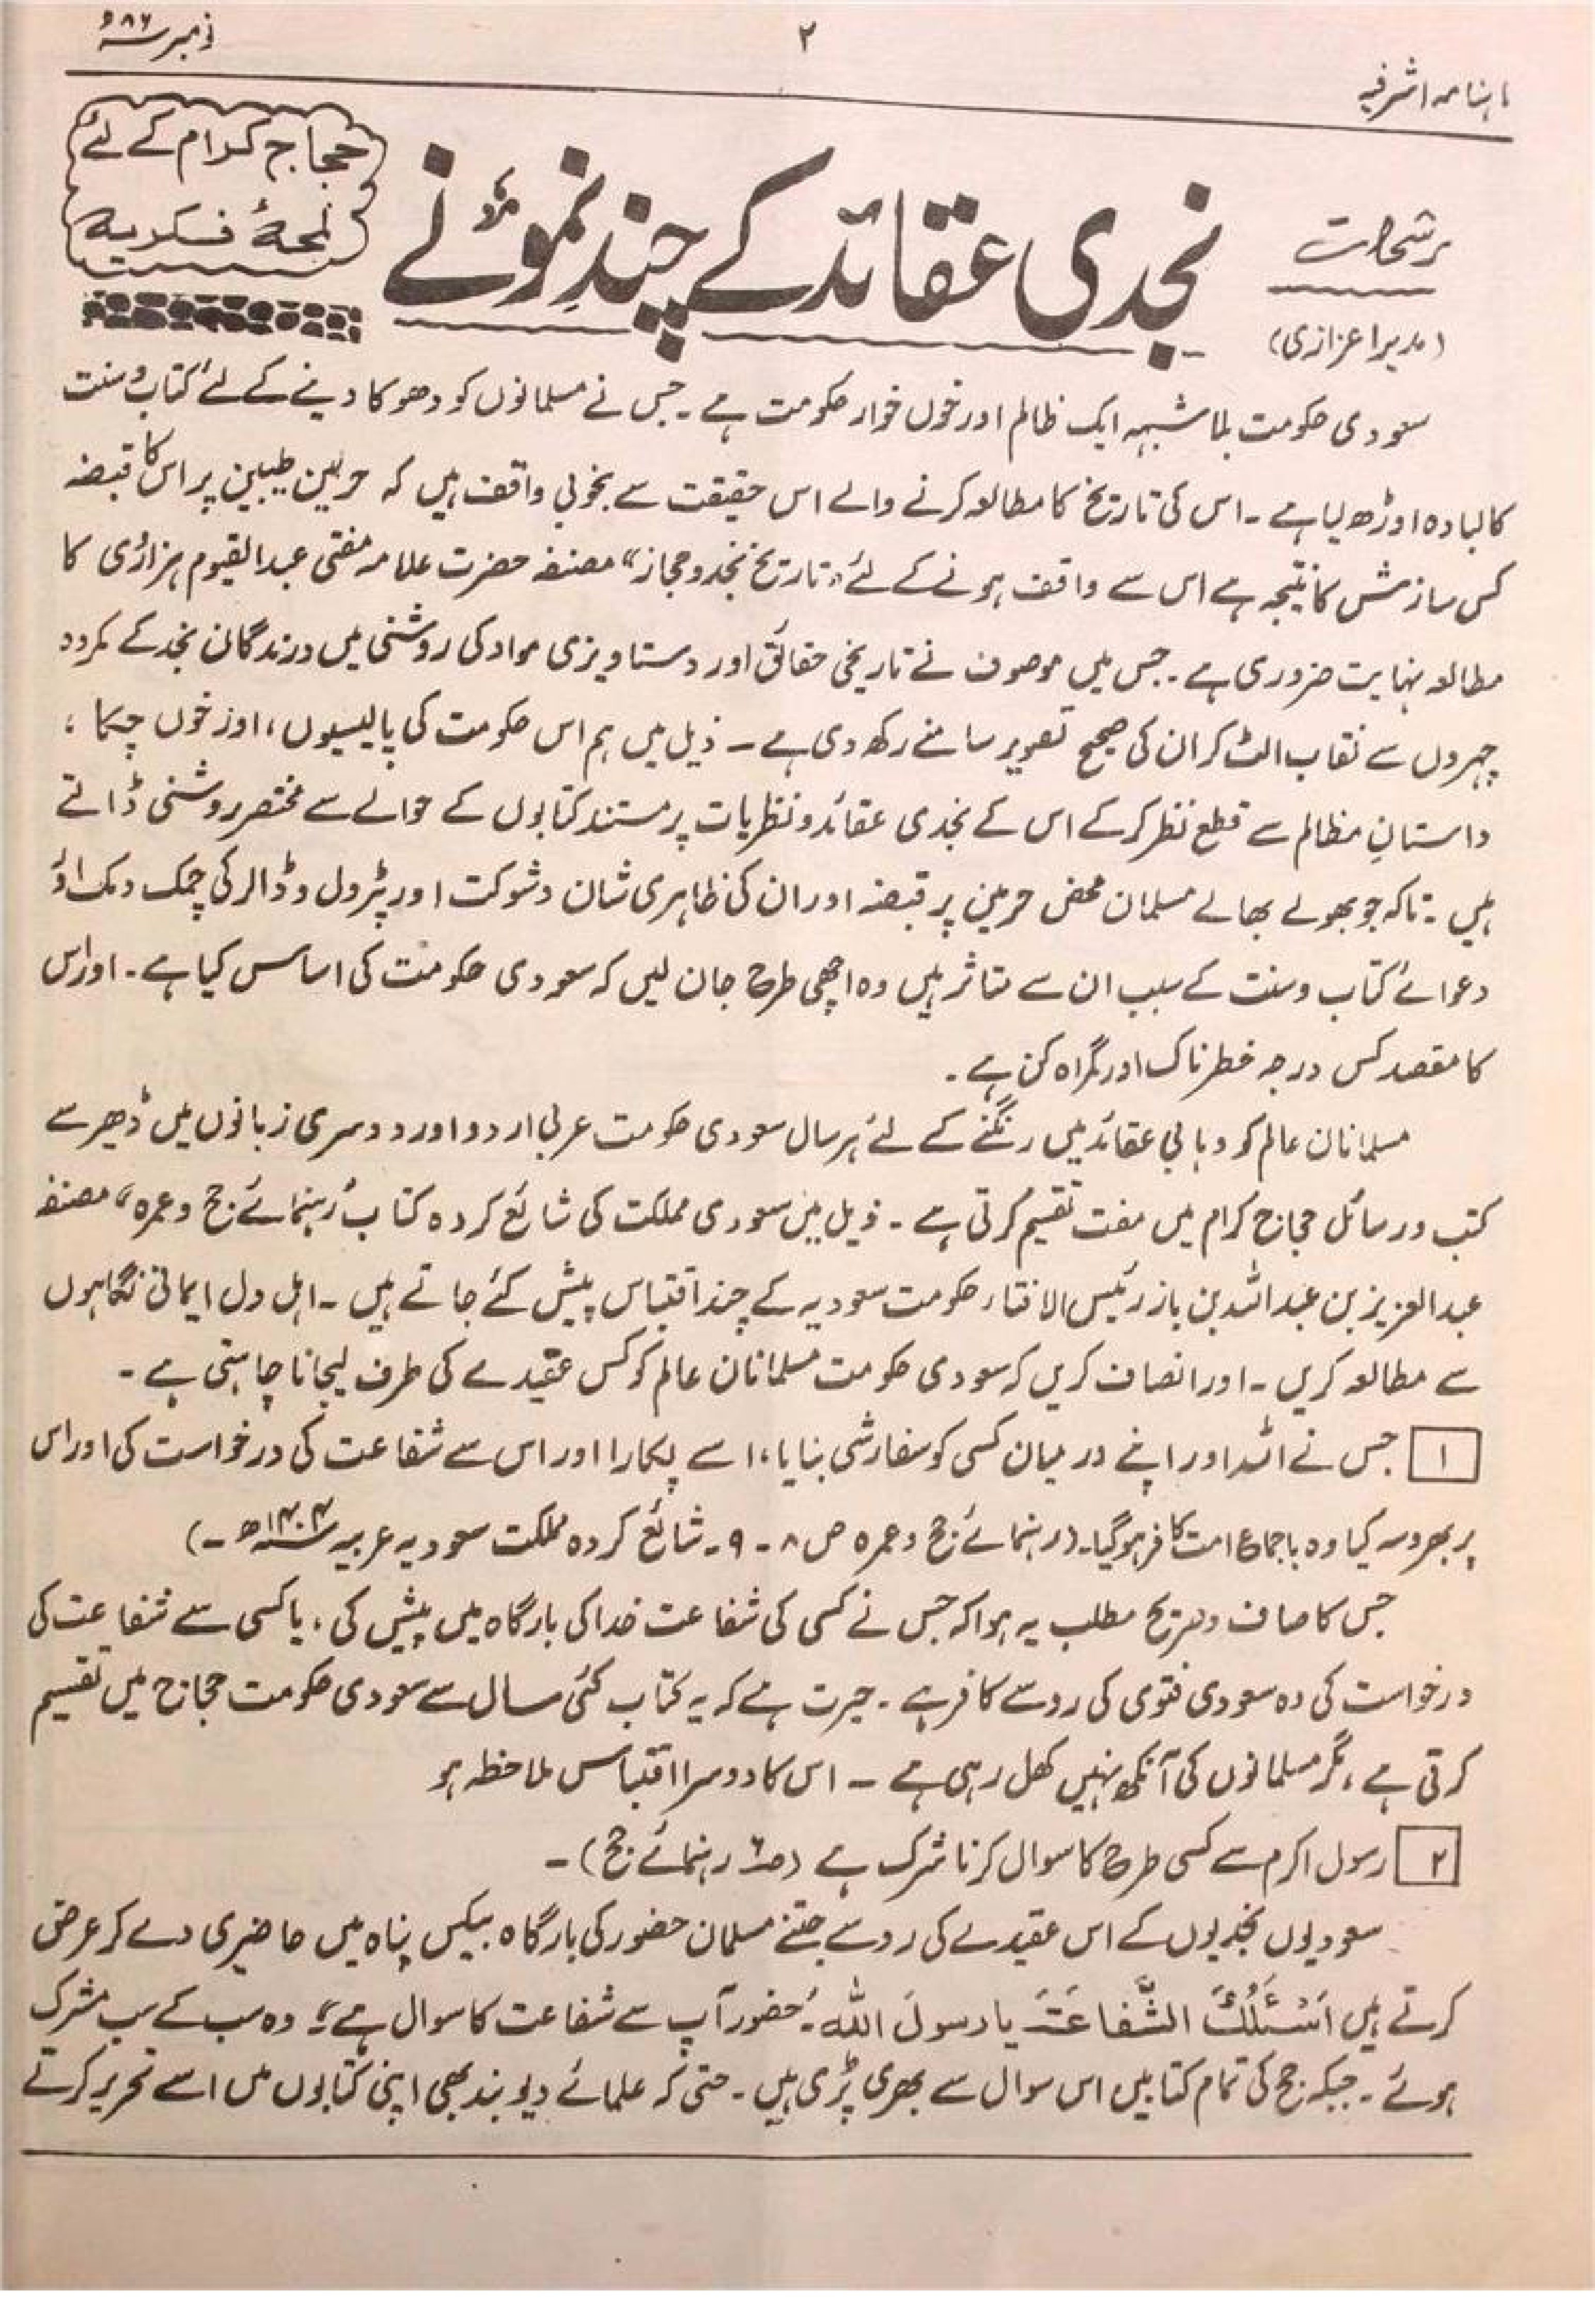 ماہنامہ اشرفیہ
۲
دسمبر ۸۶ء
رشحات
(مدیر اعزازی)
نجدی عقائد کے چند نمونے
حجاج کرام کے لئے
لمحۂ فکریہ
سعودی حکومت بلاشبہہ ایک ظالم اور خوں خوار حکومت ہے۔ جس نے مسلمانوں کو دھوکا دینے کے لئے کتاب و سنت
کا لبادہ اوڑھ لیا ہے۔ اس کی تاریخ کا مطالعہ کرنے والے اس حقیقت سے بخوبی واقف ہیں کہ حرمین طیبین پر اس کا قبضہ
کس سازش کا نتیجہ ہے اس سے واقف ہونے کے لئے "تاریخ نجد و حجاز" مصنفہ حضرت علامہ مفتی عبدالقیوم ہزاروی کا
مطالعہ نہایت ضروری ہے۔ جس میں موصوف نے تاریخی حقائق اور دستاویزی مواد کی روشنی میں درندگان نجد کے مکروہ
چہروں سے نقاب الٹ کر ان کی صحیح تصویر سامنے رکھ دی ہے ۔ ذیل میں ہم اس حکومت کی پالیسیوں، اور خوں چکا،
داستانِ مظالم سے قطع نظر کر کے اس کے نجدی عقائد و نظریات پر مستند کتابوں کے حوالے سے مختصر روشنی ڈالتے
ہیں۔ تاکہ جو بھولے بھالے مسلمان محض حرمین پر قبضہ اور ان کی ظاہری شان و شوکت اور پٹرول و ڈالر کی چمک دمک اور
دعوائے کتاب و سنت کے سبب ان سے متاثر ہیں وہ اچھی طرح جان لیں کہ سعودی حکومت کی اساس کیا ہے۔ اور اس
کا مقصد کس درجہ خطرناک اور گمراہ کن ہے۔
مسلمانان عالم کو وہابی عقائد میں رنگنے کے لئے ہر سال سعودی حکومت عربی اردو اور دوسری زبانوں میں ڈھیر سے
کتب و رسائل حجاج کرام میں مفت تقسیم کرتی ہے۔ ذیل میں سعودی مملکت کی شائع کردہ کتاب "رہنمائے حج و عمرہ" مصنفہ
عبدالعزیز بن عبداللہ بن باز رئیس الافتاء حکومت سعودیہ کے چند اقتباس پیش کئے جاتے ہیں۔ اہل دل ایمانی نگاہوں
سے مطالعہ کریں۔ اور انصاف کریں کہ سعودی حکومت مسلمانان عالم کو کس عقیدے کی طرف لیجانا چاہتی ہے۔
۱ جس نے اللہ اور اپنے درمیان کسی کو سفارشی بنایا، اسے پکارا اور اس سے شفاعت کی درخواست کی اور اس
پر بھروسہ کیا وہ باجماع امت کافر ہو گیا۔ (رہنمائے حج و عمرہ ص ۸ - ۹ - شائع کردہ مملکت سعودیہ عربیہ ۱۴۰۴ھ -)
جس کا صاف و صریح مطلب یہ ہوا کہ جس نے کسی کی شفاعت خدا کی بارگاہ میں پیش کی، یا کسی سے شفاعت کی
درخواست کی وہ سعودی فتوی کی رو سے کافر ہے۔ حیرت ہے کہ یہ کتاب کئی سال سے سعودی حکومت حجاج میں تقسیم
کرتی ہے، مگر مسلمانوں کی آنکھ نہیں کھل رہی ہے ۔ اس کا دوسرا اقتباس ملاحظہ ہو
۲ رسول اکرم سے کسی طرح کا سوال کرنا شرک ہے (ص۶ رہنمائے حج) ۔
سعودیوں نجدیوں کے اس عقیدے کی رو سے جتنے مسلمان حضور کی بارگاہ بیکس پناہ میں حاضری دے کر عرض
کرتے ہیں اَسْئَلُكَ الشَّفَاعَةَ یا رسولَ اللہ۔ "حضور آپ سے شفاعت کا سوال ہے" وہ سب کے سب مشرک
ہوئے۔ جبکہ حج کی تمام کتابیں اس سوال سے بھری پڑی ہیں۔ حتی کہ علمائے دیوبند بھی اپنی کتابوں میں اسے تحریر کرتے